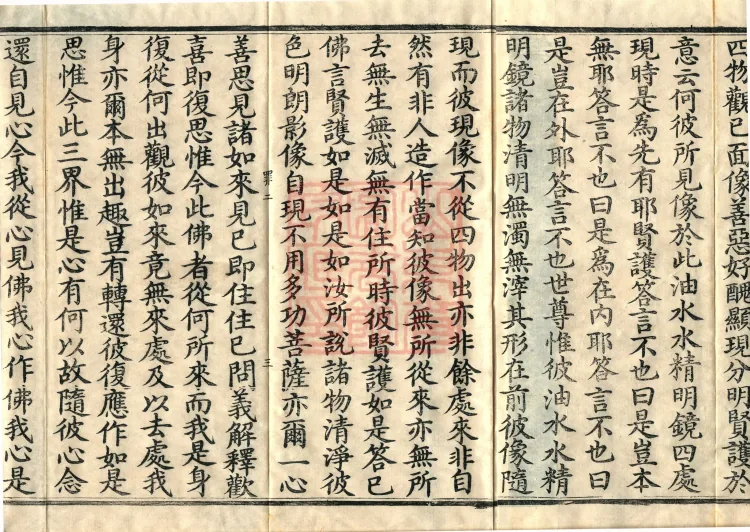 四物觀已面像善惡好醜顯現分明賢護於
意云何彼所見像於此油水水精明鏡四處
現時是為先有耶賢護答言不也曰是豈本
無耶答言不也曰是為在內耶答言不也曰
是豈在外耶答言不也世尊惟彼油水水精
明鏡諸物清明無濁無滓其形在前彼像隨
現而彼現像不從四物出亦非餘處來非自
然有非人造作當知彼像無所從來亦無所
去無生無滅無有住所時彼賢護如是答已
佛言賢護如是如是如汝所說諸物清淨彼
色明朗影像自現不用多功菩薩亦爾一心
罪二
三
善思見諸如來見已即住住已問義解釋歡
喜即復思惟今此佛者從何所來而我是身
復從何出觀彼如來竟無來處及以去處我
身亦爾本無出趣豈有轉還彼復應作如是
思惟今此三界惟是心有何以故隨彼心念
還自見心今我從心見佛我心作佛我心是